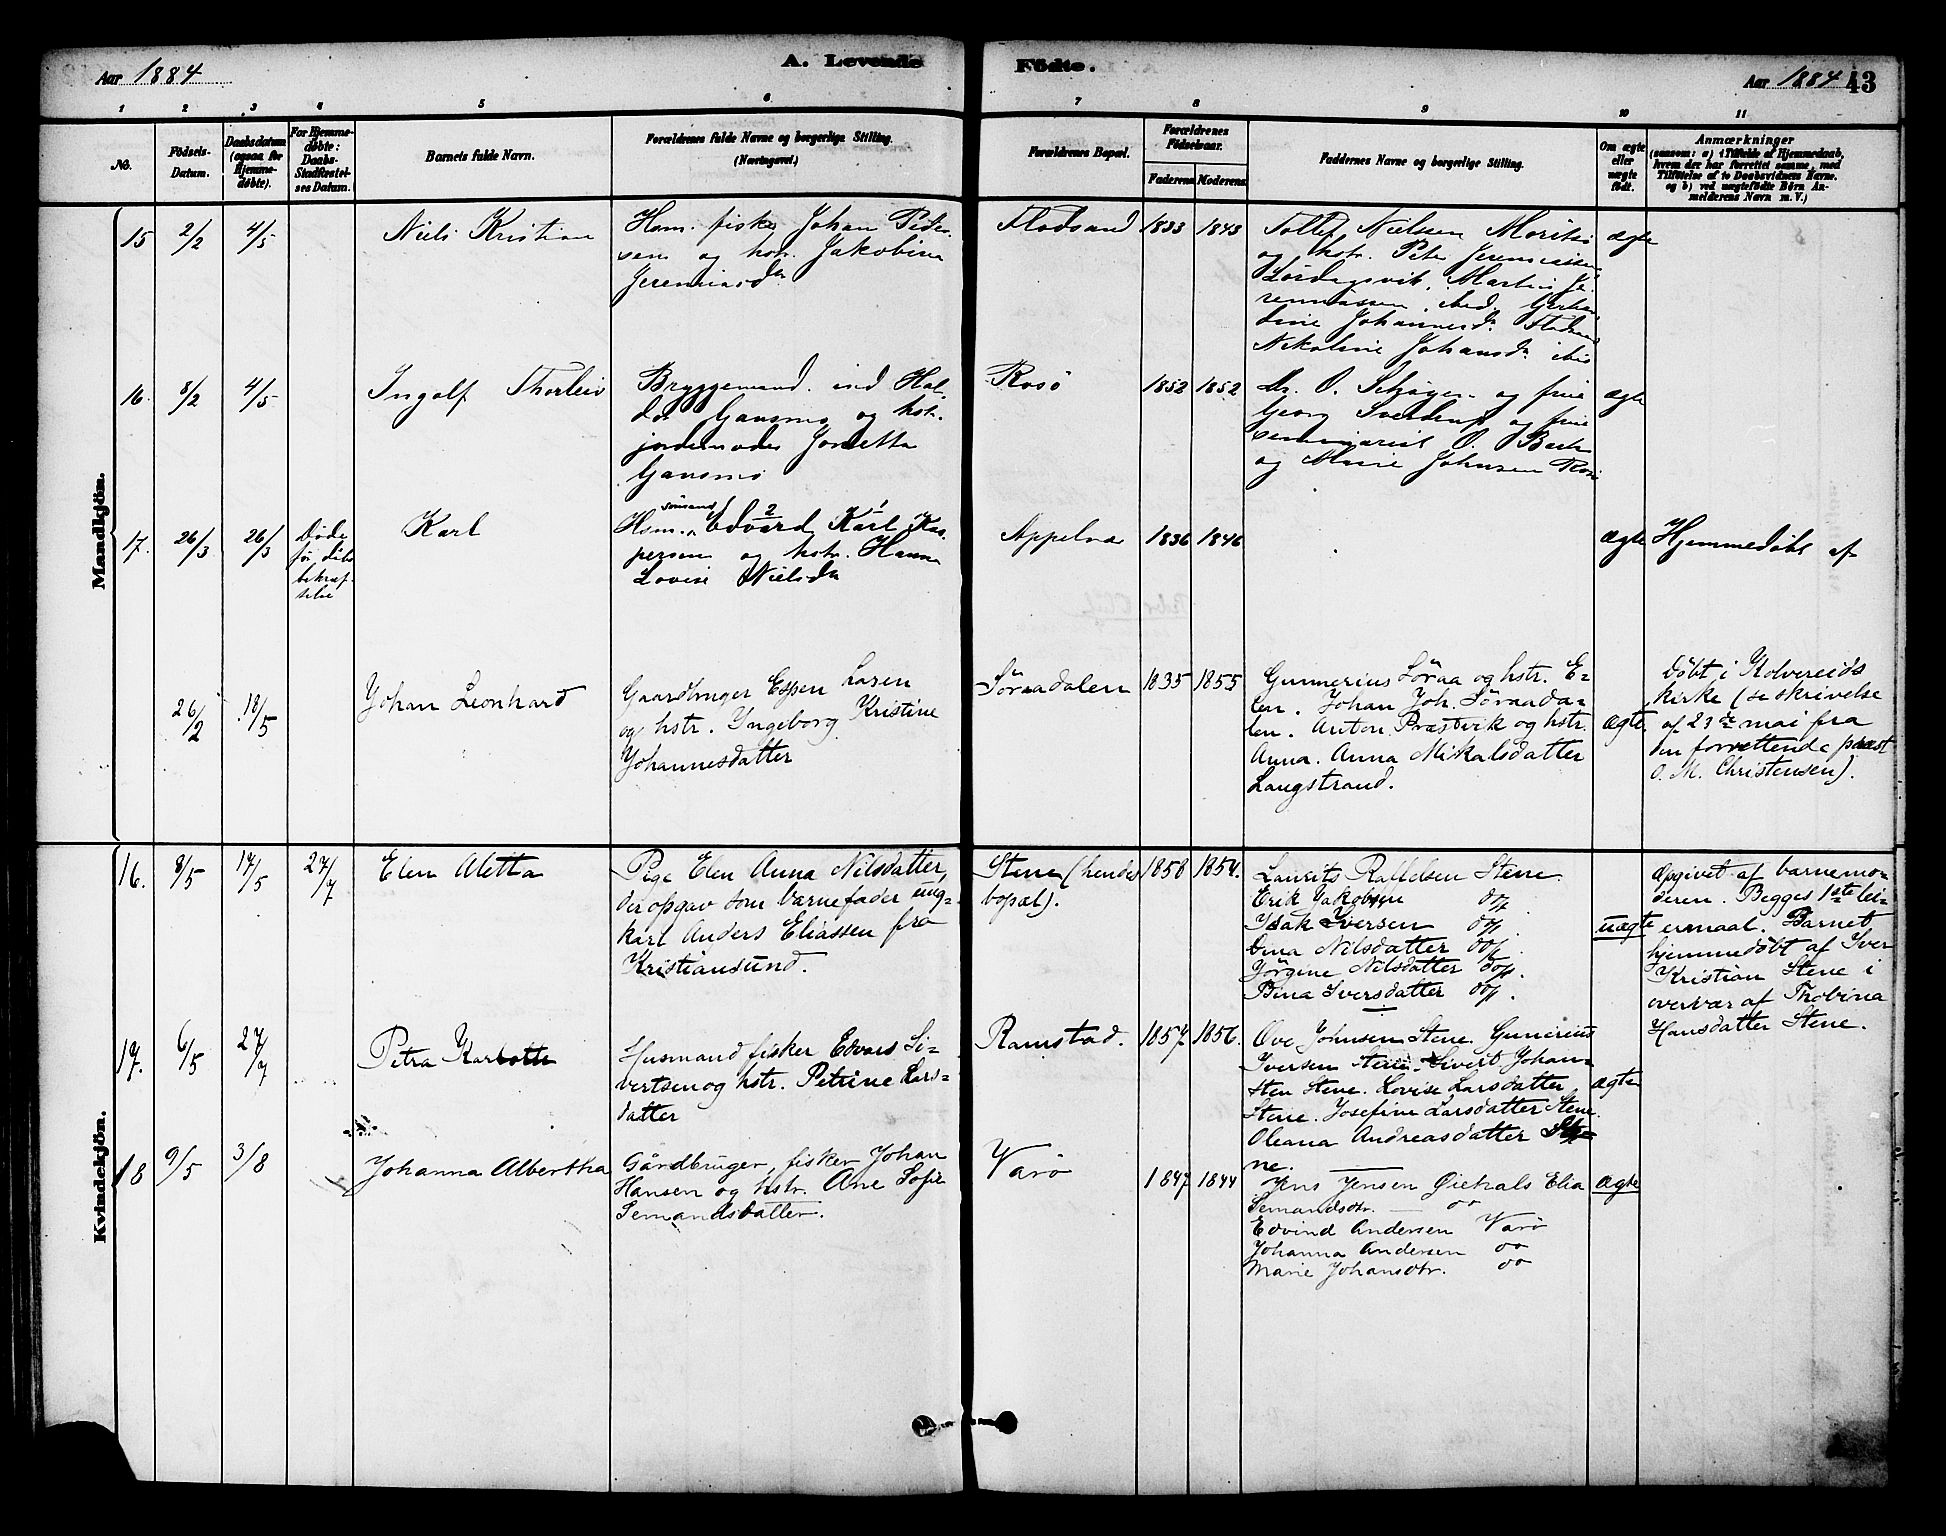 Aar 1884
A. Levende
Födte.
Aar 1884
43
1 2 3 4 5 6 7 8 9 10 11
No.
Födsels-
Datum.
Daabsdatum
(ogsaa for
Hjemme-
døbte).
For Hjemme-
døbte:
Daabs-
Stadfæstel-
ses Datum.
Barnets fulde Navn.
Forældrenes fulde Navne og borgerlige Stilling.
(Næringsvei.)
Forældrenes Bopæl.
Forældrenes
Födselsaar.
Faderens
Moderens
Faddernes Navne og borgerlige Stilling.
Om ægte
eller
uægte
födt.
Anmærkninger
(saasom: a) i Tilfælde af Hjemmedaab,
hvem der har forrettet samme, med
Tilföielse af to Daabsvidners Navne.
og b) ved uægtefödte Börn An-
melderens Navn m. V.)
Mandkjön.
15
2/2
4/5
Niels Kristian
Hsm. fisker Johan Peder-
sen og hstr. Jakobine
Jeremiasd
Flodsand
1833
1843
Nielsen
og hstr. Peter Jeremiassen
Martin Je-
remiassen ibid.
dine Johannesd.
Nikoline Johansd
ægte
16.
8/2
4/5
Ingolf Thorleiv
Bryggemand. ind Hal-
dor Gansmo og hstr.
jordemoder Jonetta
Gansmo
Rosö
1852
1852
O. og frue
Georg Sverdrup og frue
seminarist O.
og Marie Johnsen
ægte
17.
26/3
26/3
Døde
før dåbs
bekræf-
telse
Karl
sömand
Hsm. Edvard 2 Karl 1 Kas-
persen og hstr. Hanna
Lovise Nielsd
Appelvæ
1836
1846
ægte
Hjemmedöbt af
26/2
18/5
Johan Leonhard
Gaardbruger Espen Larsen
og hstr. Ingeborg Kristine
Johannesdatter
Söraadalen
1835
1855
Gunnerius Söraa og hstr. E-
len. Johan Joh. Söraada-
len. Anton Præstvik og hstr.
Anna. Anna Mikalsdatter
Langstrand.
Ægte.
Döbt i Kolvereids
kirke (se skrivelse
af 23de mai fra
den forrettende præst
O. M. Christensen).
Kvindekjön.
16.
8/5
17/5
27/7
Elen Aletta
Pige Elen Anna Nilsdatter,
der opgav som barnefader ung-
karl Anders Eliassen fra
Kristiansund.
Stene (hendes
bopæl).
1858
1854.
Laurits Stene.
Erik Jakobsen do.
Isak Iversen do.
Dina Nilsdatter do.
Jörgine Nilsdatter do.
Bina Iversdatter do.
uægte
Opgivet af barnemo-
deren. Begges 1ste lei-
ermaal. Barnet
hjemmedöbt af Iver
Kristian Stene i
overvær af Thobina
Hansdatter Stene.
17.
6/5
27/7
Petra Karlotte
Husmand fisker Edvars Si-
vertsen og hstr. Petrine Lars-
datter
Ramstad.
1857
1856.
Ove Johnsen Stene. Gunerius
Iversen Stene. Sivert Johan-
sen Stene. Lovise Larsdatter
Stene. Josefine Larsdatter Stene.
Oleana Andreasdatter Ste-
ne.
Ægte
18
9/5
3/8
Johanna Albertha
Gårdbruger, fisker Johan
Hansen og hstr. Ane Sofie
Semandsdatter.
Varö
1847
1844
Jens Jensen Elia
Semandsdtr. do
Edvind Andersen Varö
Johanna Andersen do
Marie Johansdtr. do
Ægte